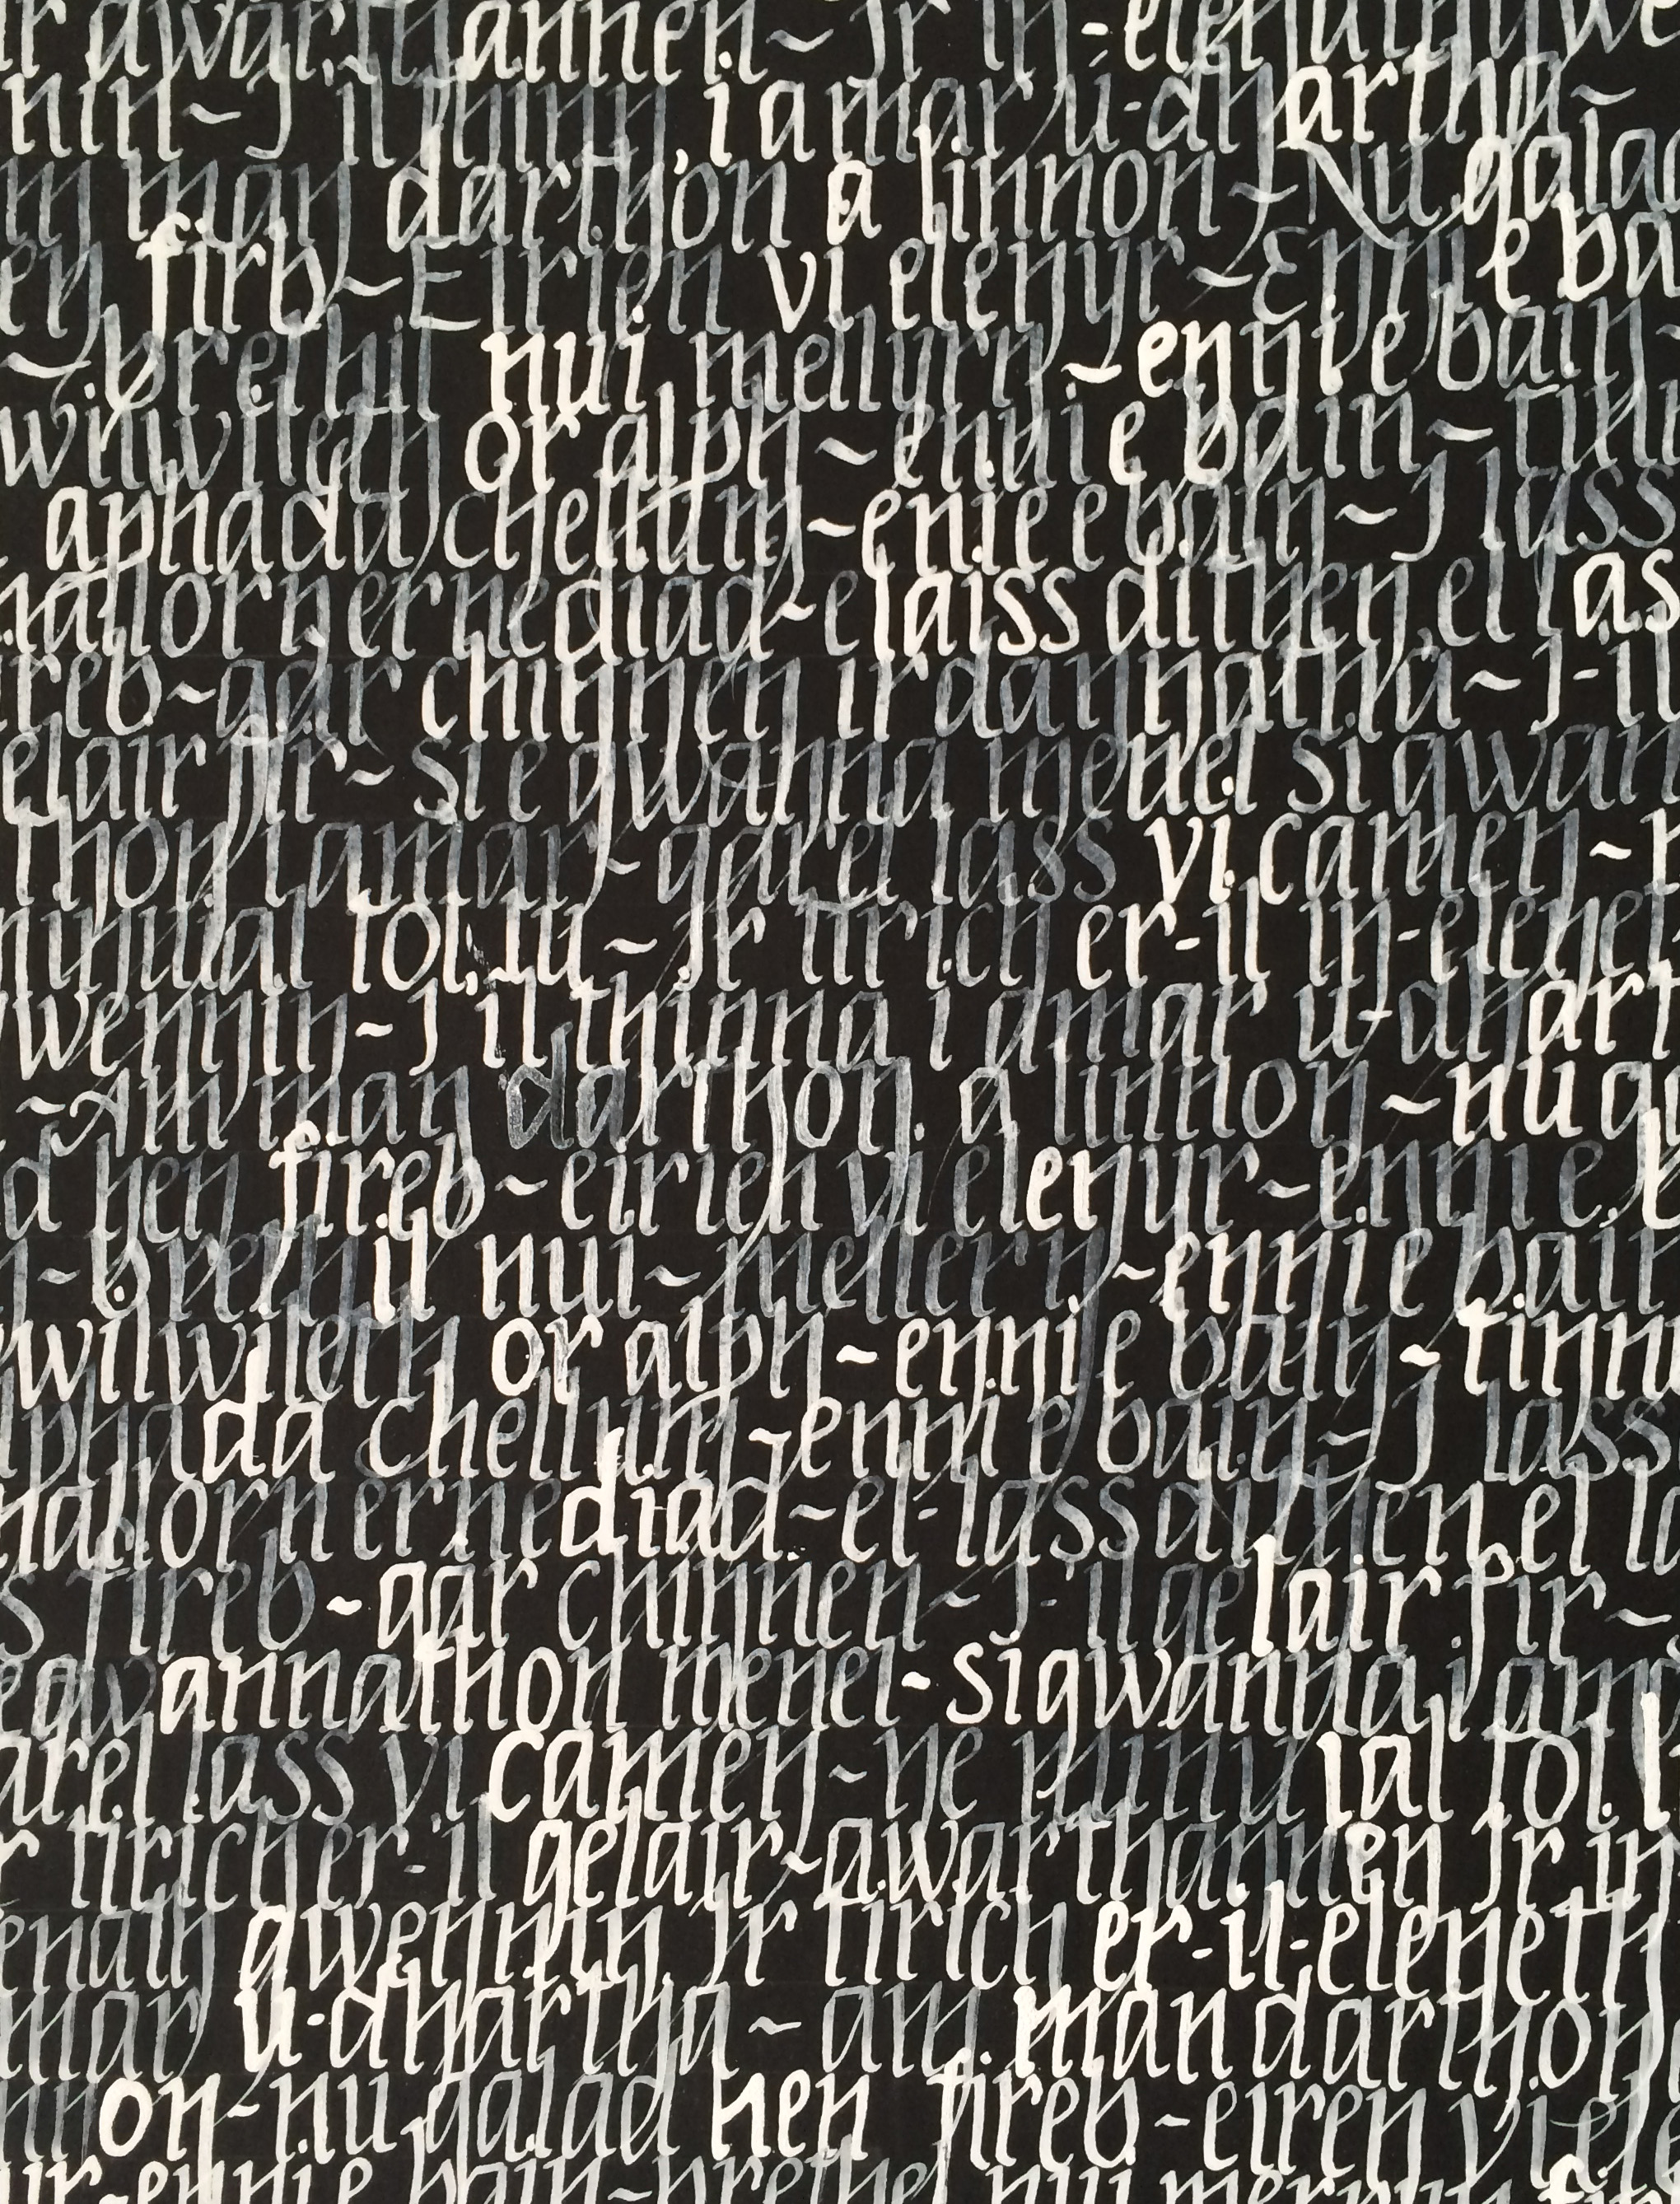 awarthannen ~ Ir in-elenath gwe
nin ~ I 'il thinn, i amar ú-dhartha ~
man darthon a linnon ~ Nu galad
hen fireb ~ Eirien vi elenyr ~ Ennie ba
~ brethil nui mellyrn ~ ennie bain ~
wilwileth or alph ~ ennie bain ~ tinu
aphada chellum ~ ennie ebain ~ I lass
mallorn ernediad ~ e laiss dithen, el las
fireb ~ gar chinnen ir dannatha ~ I-il
gelair fir ~ si egwanna menel si gwan
thon i amar ~ garel lass vi camen ~ n
ninnial tol, tu ~ Ir tirich er-il in-eleneth
gwennin ~ I 'il thinna i amar ú-dhart
~ An man darthon a linnon ~ nu ga
d hen fireb ~ eirien vi elenyr ~ ennie, b
~ brethil nui ~ mellern ~ ennie bain
wilwileth or alph ~ ennie bain ~ tinnu
phada chellum ~ ennie bain ~ I lass
mallorn ernediad ~ el-lass dithen el la
s fireb ~ gar chinnen ~ I-il gelair fir ~
egwannathon menel ~ si gwanna i am
arel lass vi camen ~ ne ninnial tol
r tirich er-il gelair ~ awarthannen Ir in
enath gwennin, Ir tirich er-il-eleneth
mar ú-dhartha ~ am man darthon
on ~ nu galad hen fireb ~ eiren vi ele
yr-ennie bain-brethel nui